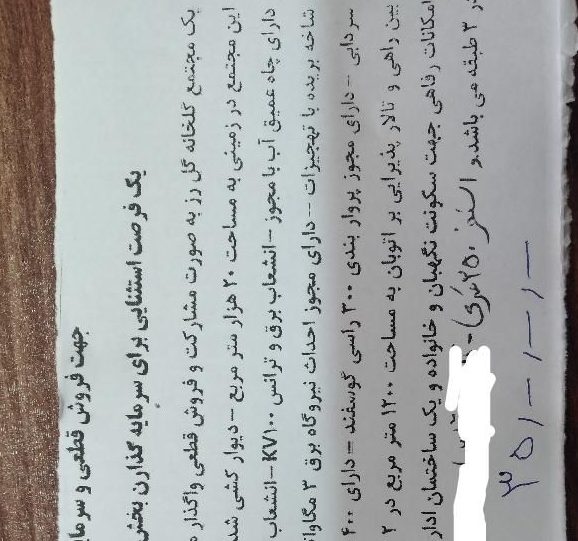 جهت فروش قطعی و
یک فرصت استثنایی برای سرمایه گذارن بخش
یک مجتمع گلخانه گل رز به صورت مشارکت و فروش قطعی واگذار
این مجتمع در زمینی به مساحت ۲۰ هزار متر مربع - دیوار کشی شد
دارای چاه عمیق آب با مجوز - انشعاب برق و ترانس KV۱۰۰ - انشعاب
شاخه بریده با تهجیزات - دارای مجوز احداث نیروگاه برق ۳ مگاوا
سردابی - دارای مجوز پروار بندی ۳۰۰ راسی گوسفند - دارای ۴۰۰
بین راهی و تالار پذیرایی بر اتوبان به مساحت ۱۲۰۰ متر مربع در ۲
امکانات رفاهی جهت سکونت نگهبان و خانواده و یک ساختمان ادار
در ۳ طبقه می باشد. و استخر ۲۵۰ متری
۳۵/-/-/-